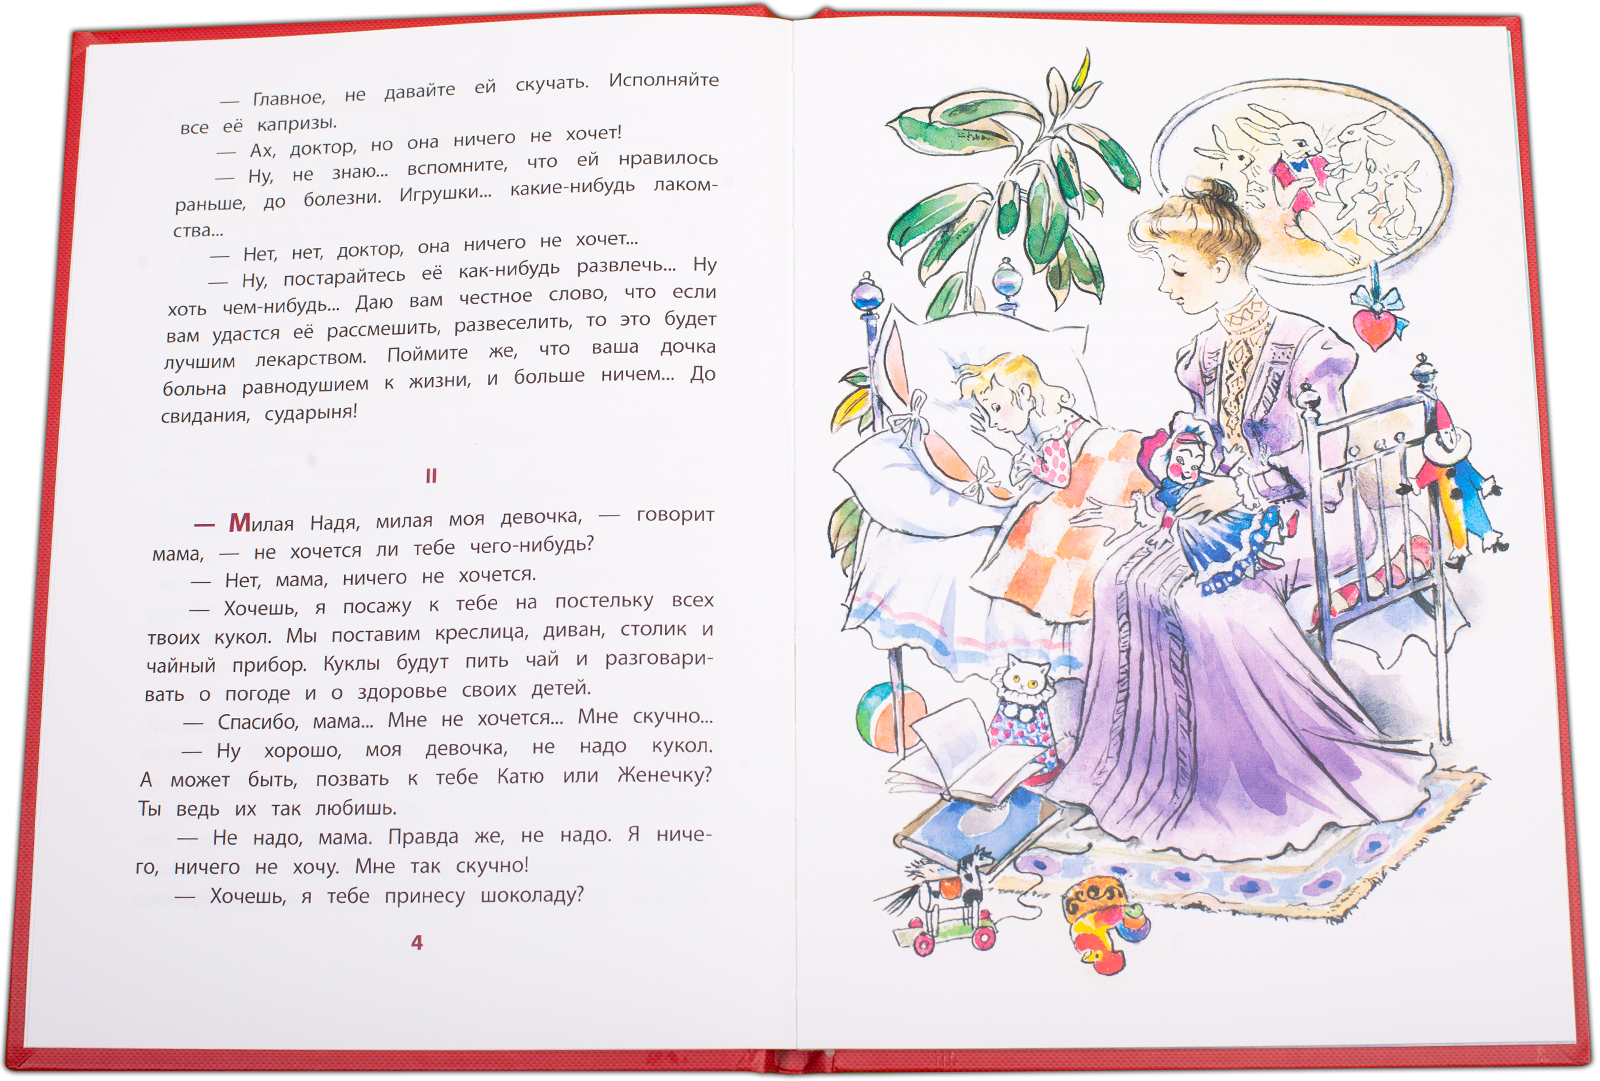 — Главное, не давайте ей скучать. Исполняйте
все её капризы.
— Ах, доктор, но она ничего не хочет!
— Ну, не знаю... вспомните, что ей нравилось
раньше, до болезни. Игрушки... какие-нибудь лаком-
ства...
— Нет, нет, доктор, она ничего не хочет...
— Ну, постарайтесь её как-нибудь развлечь... Ну
хоть чем-нибудь... Даю вам честное слово, что если
вам удастся её рассмешить, развеселить, то это будет
лучшим лекарством. Поймите же, что ваша дочка
больна равнодушием к жизни, и больше ничем... До
свидания, сударыня!
II
— Милая Надя, милая моя девочка, — говорит
мама, — не хочется ли тебе чего-нибудь?
— Нет, мама, ничего не хочется.
— Хочешь, я посажу к тебе на постельку всех
твоих кукол. Мы поставим креслица, диван, столик и
чайный прибор. Куклы будут пить чай и разговари-
вать о погоде и о здоровье своих детей.
— Спасибо, мама... Мне не хочется... Мне скучно...
— Ну хорошо, моя девочка, не надо кукол.
А может быть, позвать к тебе Катю или Женечку?
Ты ведь их так любишь.
— Не надо, мама. Правда же, не надо. Я ниче-
го, ничего не хочу. Мне так скучно!
— Хочешь, я тебе принесу шоколаду?
4